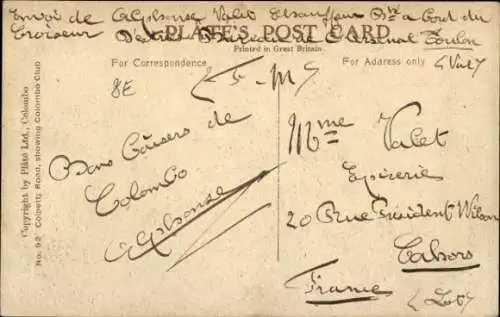 Envoi de Alphonse Valet Chauffeur Bté a bord du
Croiseur
PLÂTÉ'S POST CARD.
Arsenal Toulon
Printed in Great Britain.
(Var)
For Correspondence
For Address only
8E
(F-M)
Bons Baisers de
Colombo
Alphonse
Mme Valet
Epicerie
20 Rue President Wilson
Cahors
France
(Lot)
Copyright by Plâté Ltd., Colombo
No. 92 Colpetty Road, showing Colombo Club